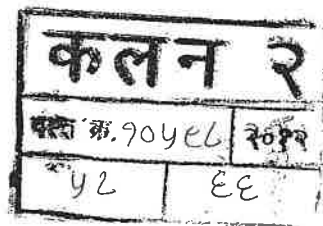 कलन २
दस्त क्र. १०५९८ २०१२
५८ ६६